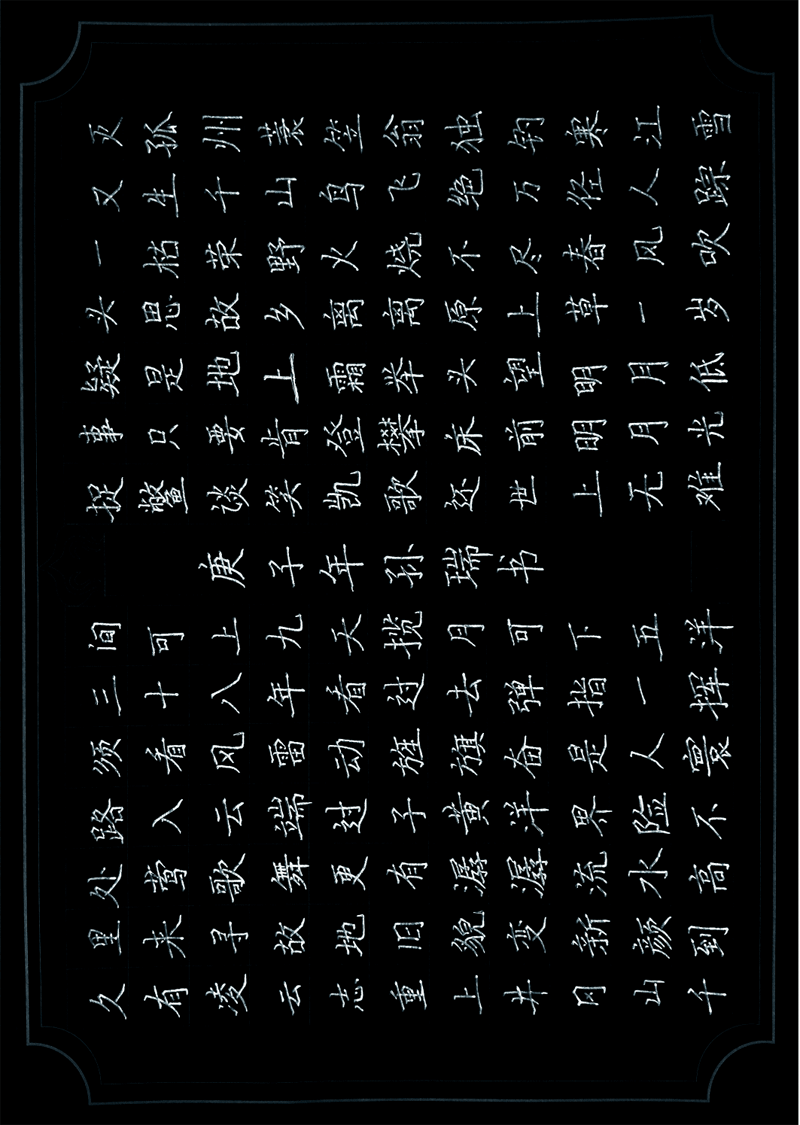 久有凌云志重上井冈山千
里来寻故地旧貌变新颜到
处莺歌舞更有潺潺流水高
路入云端过子黄洋界险不
须看风雷动旌旗奋是人寰
三十八年看过去弹指一挥
间可上九天揽月可下五洋
庚子年孙瑞书
捉鳖谈笑凯歌还世上无难
事只要肯登攀床前明月光
疑是地上霜举头望明月低
头思故乡离离原上草一岁
一枯荣野火烧不尽春风吹
又生千山鸟飞绝万径人踪
灭孤州蓑笠翁独钓寒江雪